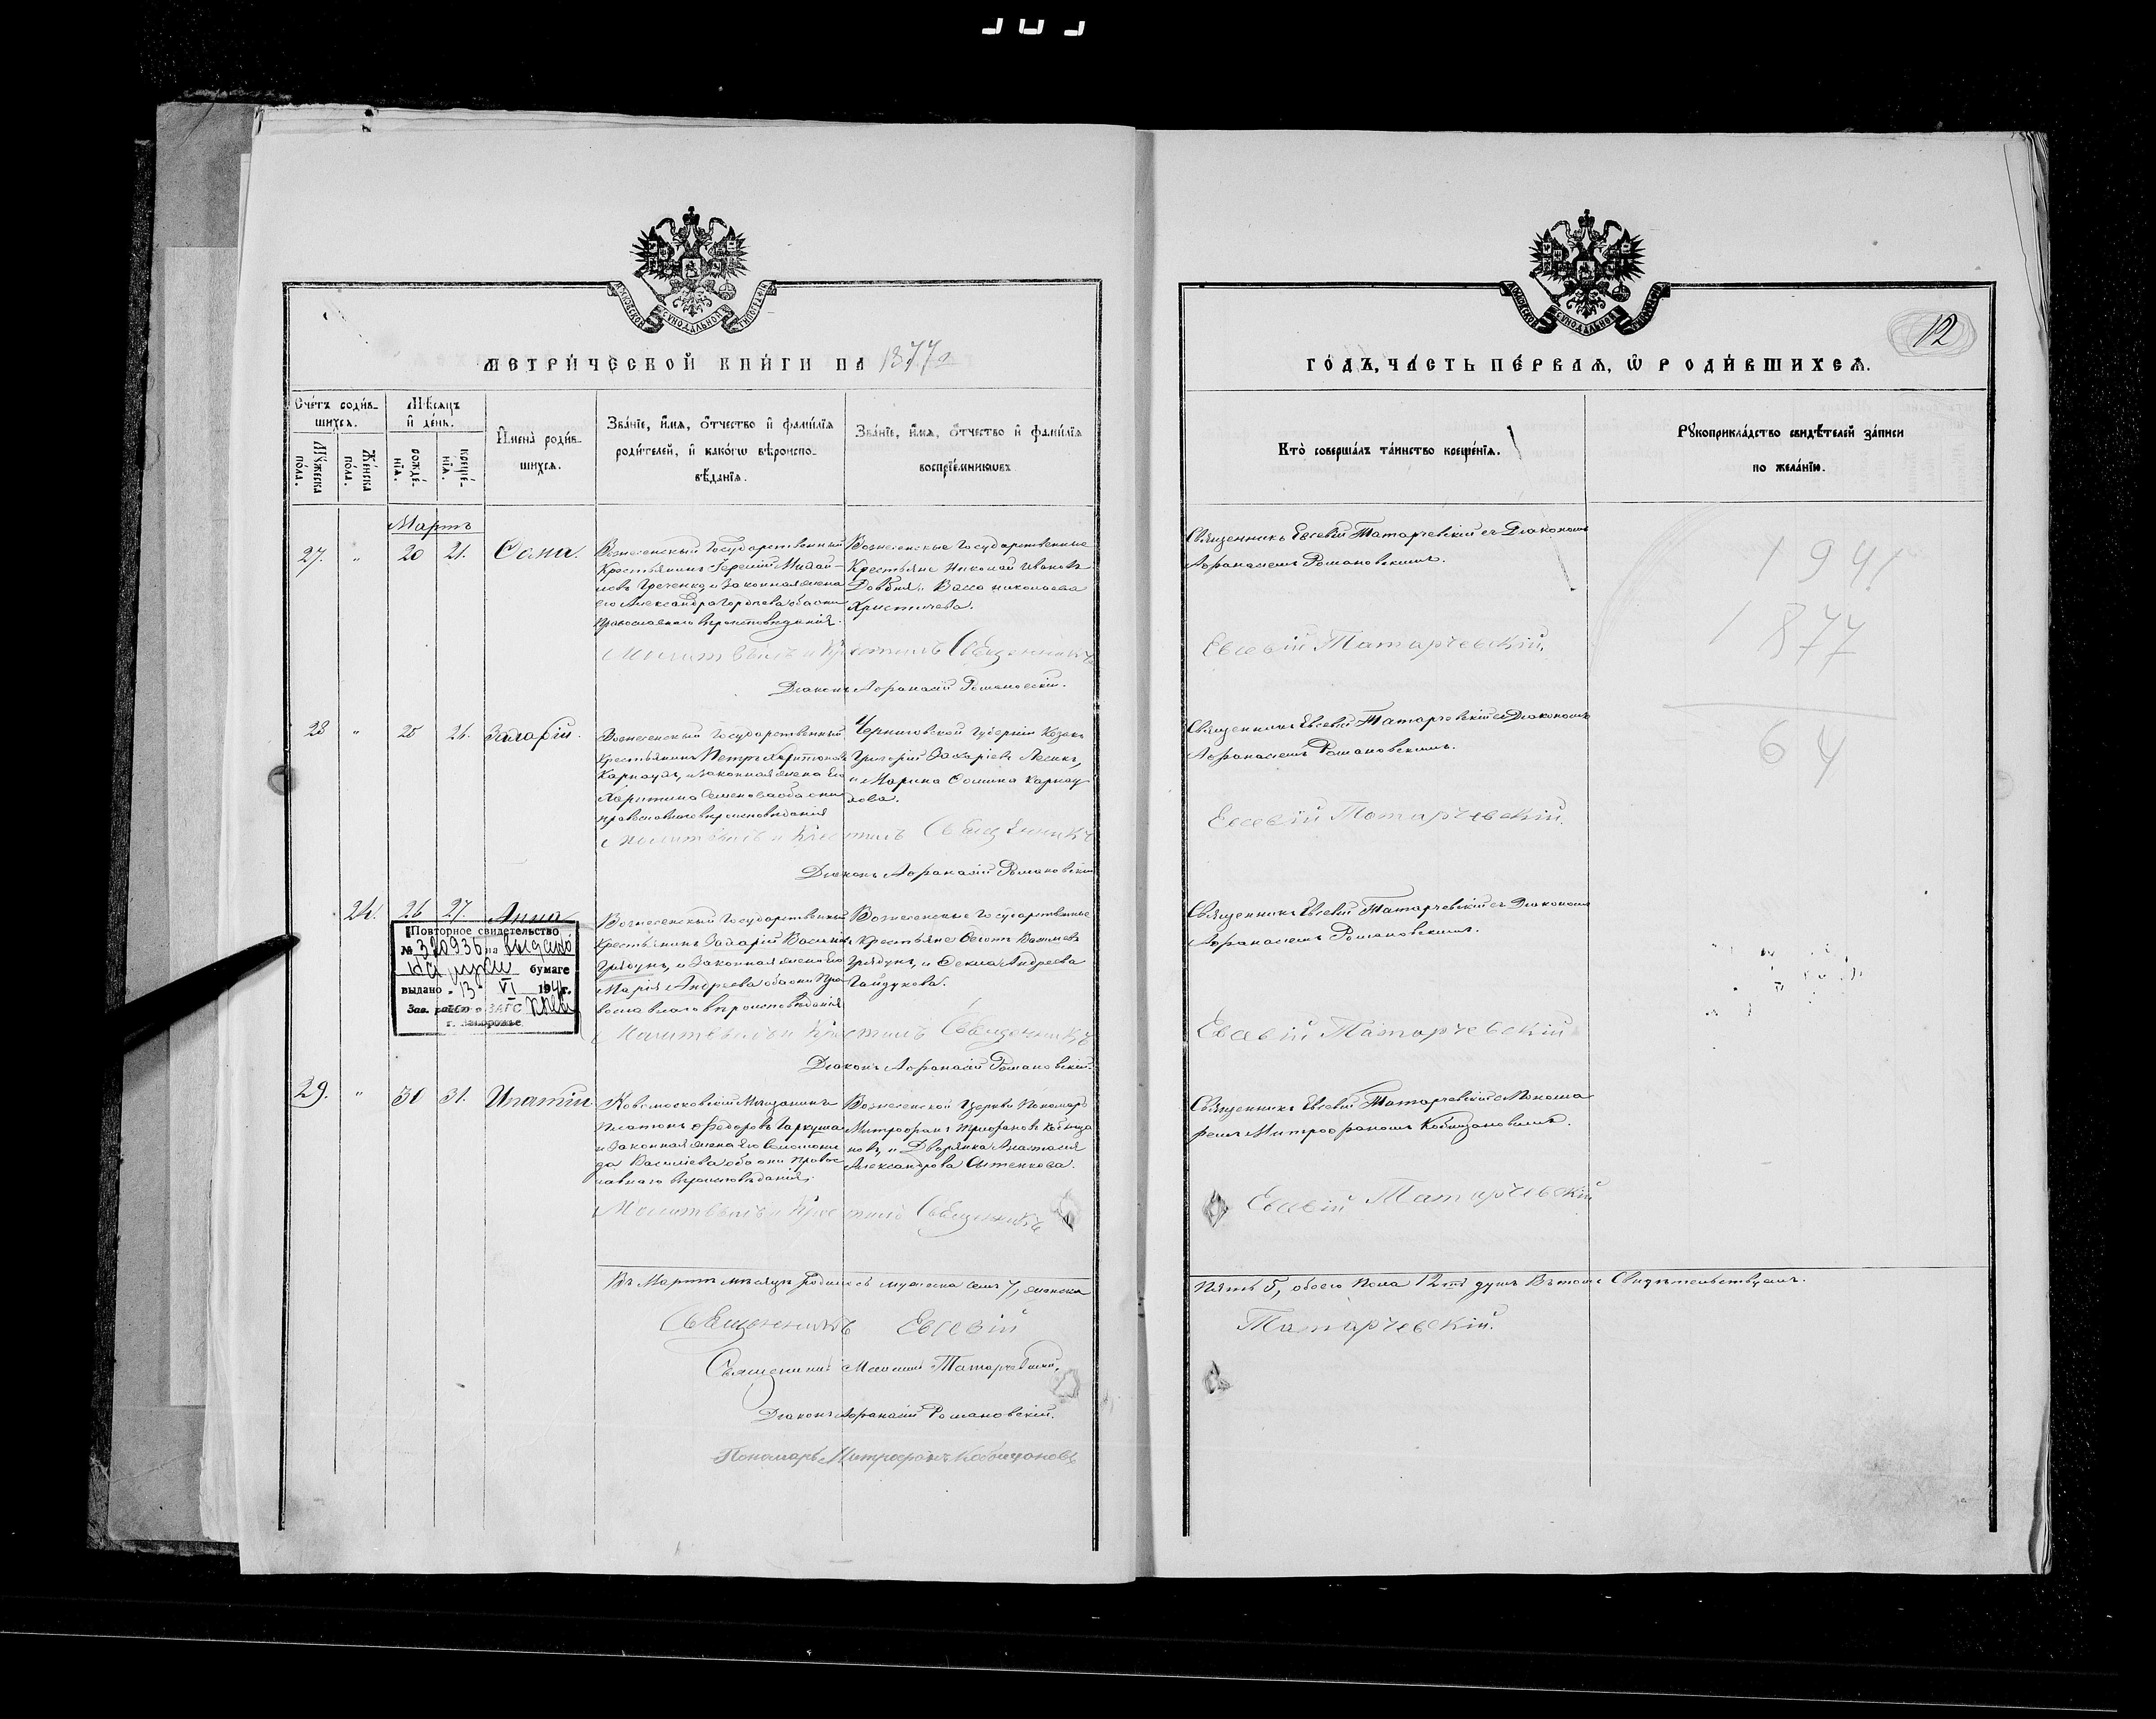 МОСКОВСКОЙ СѴНОДАЛЬНОЙ ТИПОГРАФІИ
МЕТРИ́ЧЕСКОЙ КНИ́ГИ НА 1877 г
Сче́тъ роди́в-
шихсѧ.
Мꙋ́жеска по́ла.
Же́нска по́ла.
Мѣ́сѧцъ
и҆ де́нь.
рожде́-
нїѧ.
креще́-
нїѧ.
И҆мена̀ роди́в-
шихсѧ.
Зва́нїе, и҆́мѧ, ѻ҆́тчество и҆ фами́лїѧ
роди́телей, и҆ како́гѡ вѣроиспо-
вѣ́данїѧ.
Зва́нїе, и҆́мѧ, ѻ҆́тчество и҆ фами́лїѧ
воспрїе́мникѡвъ
Мартъ
27. " 20 21. Ѳома.
Вознесенскый Государственный
Крестьянинъ
Греченко, и Законная жена
его Александра оба они
Православнаго вѣроисповѣданія.
Вознесенские Государственные
Крестьяне Николай Иванова
Довбня и Васса Николаева
Христичева.
Молитвовалъ и Крестилъ Священникъ
Діаконъ Афанасій Романовскій.
28 " 25 26. Захарій.
Вознесенскый Государственный
Крестьянинъ Петръ Харитоновъ
Карнаухъ, и Законная жена Его
Харитина Семенова оба они
православнаго вѣроисповѣданія
Черниговской Губерніи Козакъ
Григорій Захаріевъ Лесикъ,
и Марина Ѳомина Карнау
хова.
Молитвовалъ и Крестилъ Священникъ
Діаконъ Афанасій Романовскій
24. 26 27. Анна
Вознесенскый Государственный
Крестьянинъ Захарій Васильевъ
и Законная жена Его
Марія Андреева оба они Пра
вославнаго вѣроисповѣданія
Вознесенские Государственные
Крестьяне Василіевъ
и Андреева
Гайдукова.
Молитвовалъ и Крестилъ Священникъ
Діаконъ Афанасій Романовскій.
Повторное свидетельство
№ 320936 на выдано
бумаге
выдано „13" VI 1941г.
ЗАГС
г. Запорожье
29. " 30 31. Ипатій
Новомосковскій Мѣщанинъ
Платонъ Ѳедоровъ Гаркуша
и Законная жена Его Соломони
да Василіева оба они правос
лавнаго вѣроисповѣданія.
Вознесенской Церкви Пономарь
Митрофанъ Трифоновъ Кобыща
новъ, и Дворянка Анастасія
Александрова
Молитвовалъ и Крестилъ Священникъ
Въ Мартѣ мѣсяцѣ Родилось мужеска семь 7, женска
Священникъ Евсевій
Священникъ Татарчевскій.
Діаконъ Афанасій Романовскій.
Пономарь Митрофанъ Кобыщановъ
МОСКОВСКОЙ СѴНОДАЛЬНОЙ ТИПОГРАФІИ
12
ГО́ДЪ, ЧА́СТЬ ПЕ́РВАѦ, Ѡ҆ РОДИ́ВШИХСѦ.
Кто̀ соверша́лъ та́инство креще́нїѧ.
Рꙋкоприкла́дство свидѣ́телей за́писи
по жела́нїю.
Священникъ Евсевій Татарчевскій съ Діакономъ
Афанасіемъ Романовскимъ.
Евсевій Татарчевскій.
1941
1877
64
Священникъ Евсевій Татарчевскій съ Діакономъ
Афанасіемъ Романовскимъ.
Евсевій Татарчевскій.
Священникъ Евсевій Татарчевскій съ Діакономъ
Афанасіемъ Романовскимъ.
Евсевій Татарчевскій
Священникъ Евсевій Татарчевскій с Понома
ремъ Митрофаномъ Кобыщановымъ.
Евсевій Татарчевскій
Пять 5, обоего Пола 12ть душъ Въ томъ Свидѣтельствуемъ.
Татарчевскій.